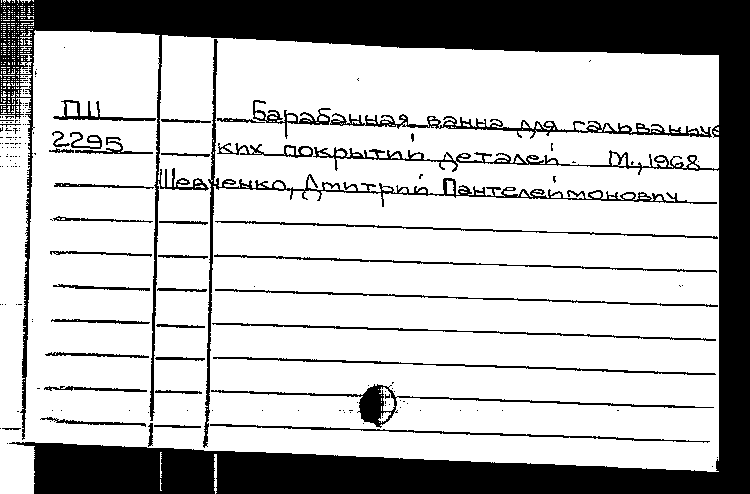 ПШ Барабанная ванна для гальваниче
2295 ских покрытий деталей. М., 1968
Шевченко, Дмитрий Пантелеймонович